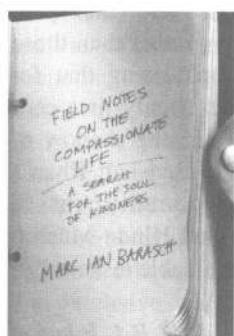 FIELD NOTES
ON THE
COMPASSIONATE
LIFE
A SEARCH
FOR THE SOUL
OF KINDNESS
MARC IAN BARASCH